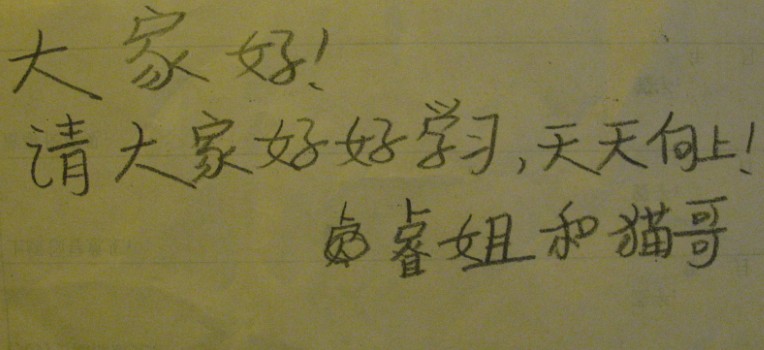 大家好!
请大家好好学习,天天向上!
睿姐和猫哥